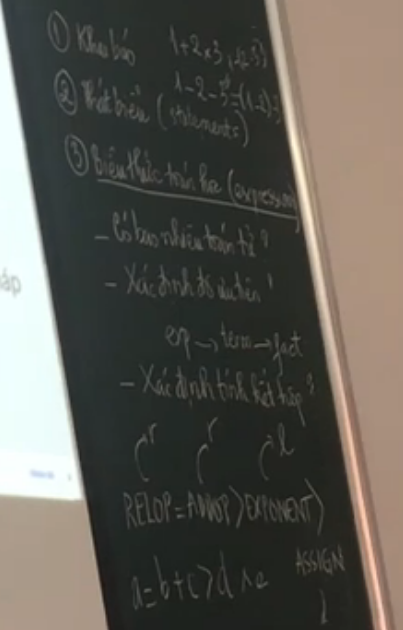 ① Khai báo 1+2×3
② Phát biểu (statements) 1-2-3=(1-2)-3
③ Biểu thức toán học (expression)
- Có bao nhiêu toán tử?
- Xác định độ ưu tiên?
exp → term → fact
- Xác định tính kết hợp?
r r l
RELOP = ADDOP > EXPONENT >
ASSIGN
a=b+c>d^e
áp